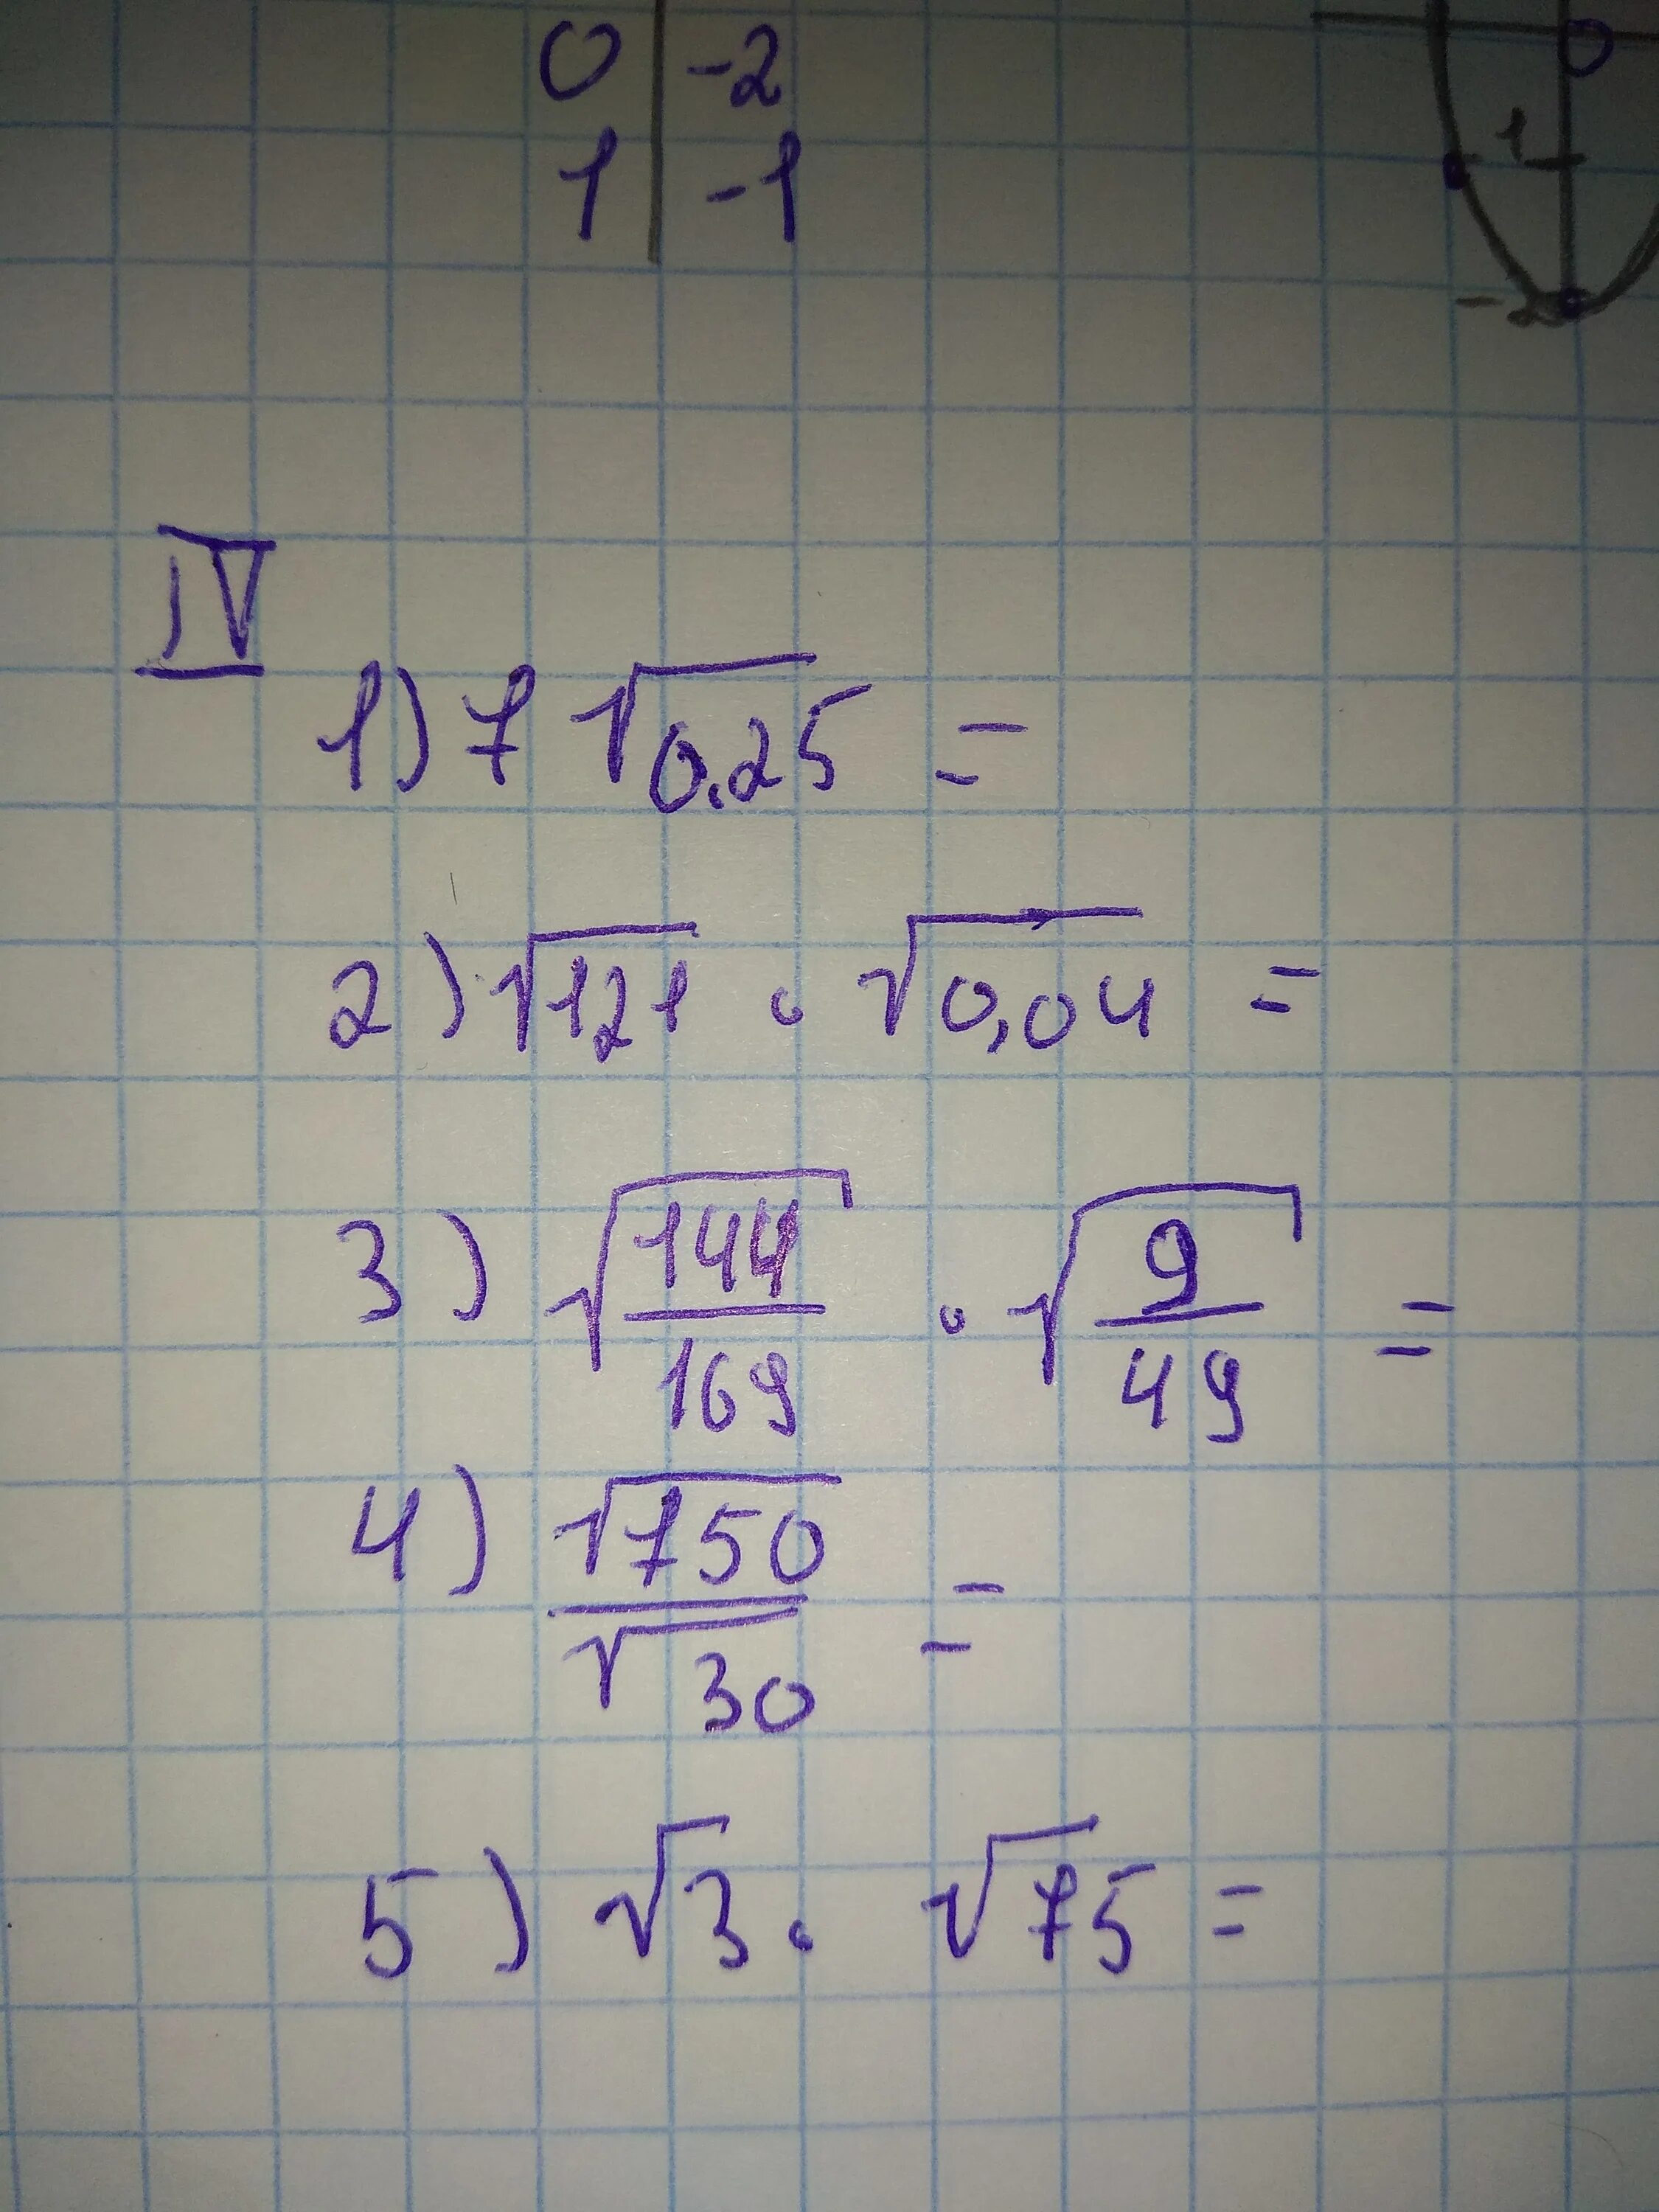 0 | -2 0
1 | -1 -1
-2
IV
1) 7 √0,25 =
2) √121 · √0,04 =
3) √(144/169) · √(9/49) =
4) √750/√30 =
5) √3 · √75 =